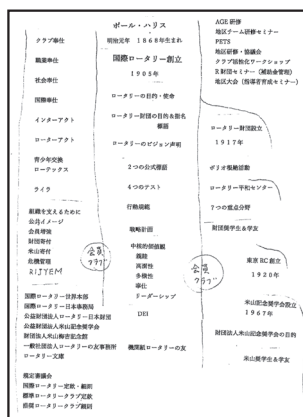 ポール・ハリス
明治元年 1868年生まれ
クラブ奉仕
職業奉仕
社会奉仕
国際奉仕
インターアクト
ローターアクト
青少年交換
ローテックス
ライラ
組織を支えるために
公共イメージ
会員増強
財団寄付
米山寄付
危機管理
RIJYEM
会員
クラブ
国際ロータリー世界本部
国際ロータリー日本事務局
公益財団法人ロータリー日本財団
公益財団法人米山記念奨学会
公益財団法人米山梅吉記念館
一般社団法人ロータリーの友事務所
ロータリー文庫
規定審議会
国際ロータリー定款・細則
標準ロータリークラブ定款
推奨ロータリークラブ細則
国際ロータリー創立
1905年
ロータリーの目的・使命
ロータリー財団の目的&指名
標語
ロータリーのビジョン声明
2つの公式標語
4つのテスト
行動規範
戦略計画
中核的価値観
親睦
高潔性
多様性
奉仕
リーダーシップ
DEI
機関紙ロータリーの友
AGE 研修
地区チーム研修セミナー
PETS
地区研修・協議会
クラブ活性化ワークショップ
R財団セミナー(補助金管理)
地区大会(指導者育成セミナー)
ロータリー財団設立
1917年
ポリオ根絶活動
ロータリー平和センター
7つの重点分野
財団奨学生&学友
会員
クラブ
東京RC創立
1920年
米山記念奨学会設立
1967年
財団法人米山記念奨学会の目的
米山奨学生&学友